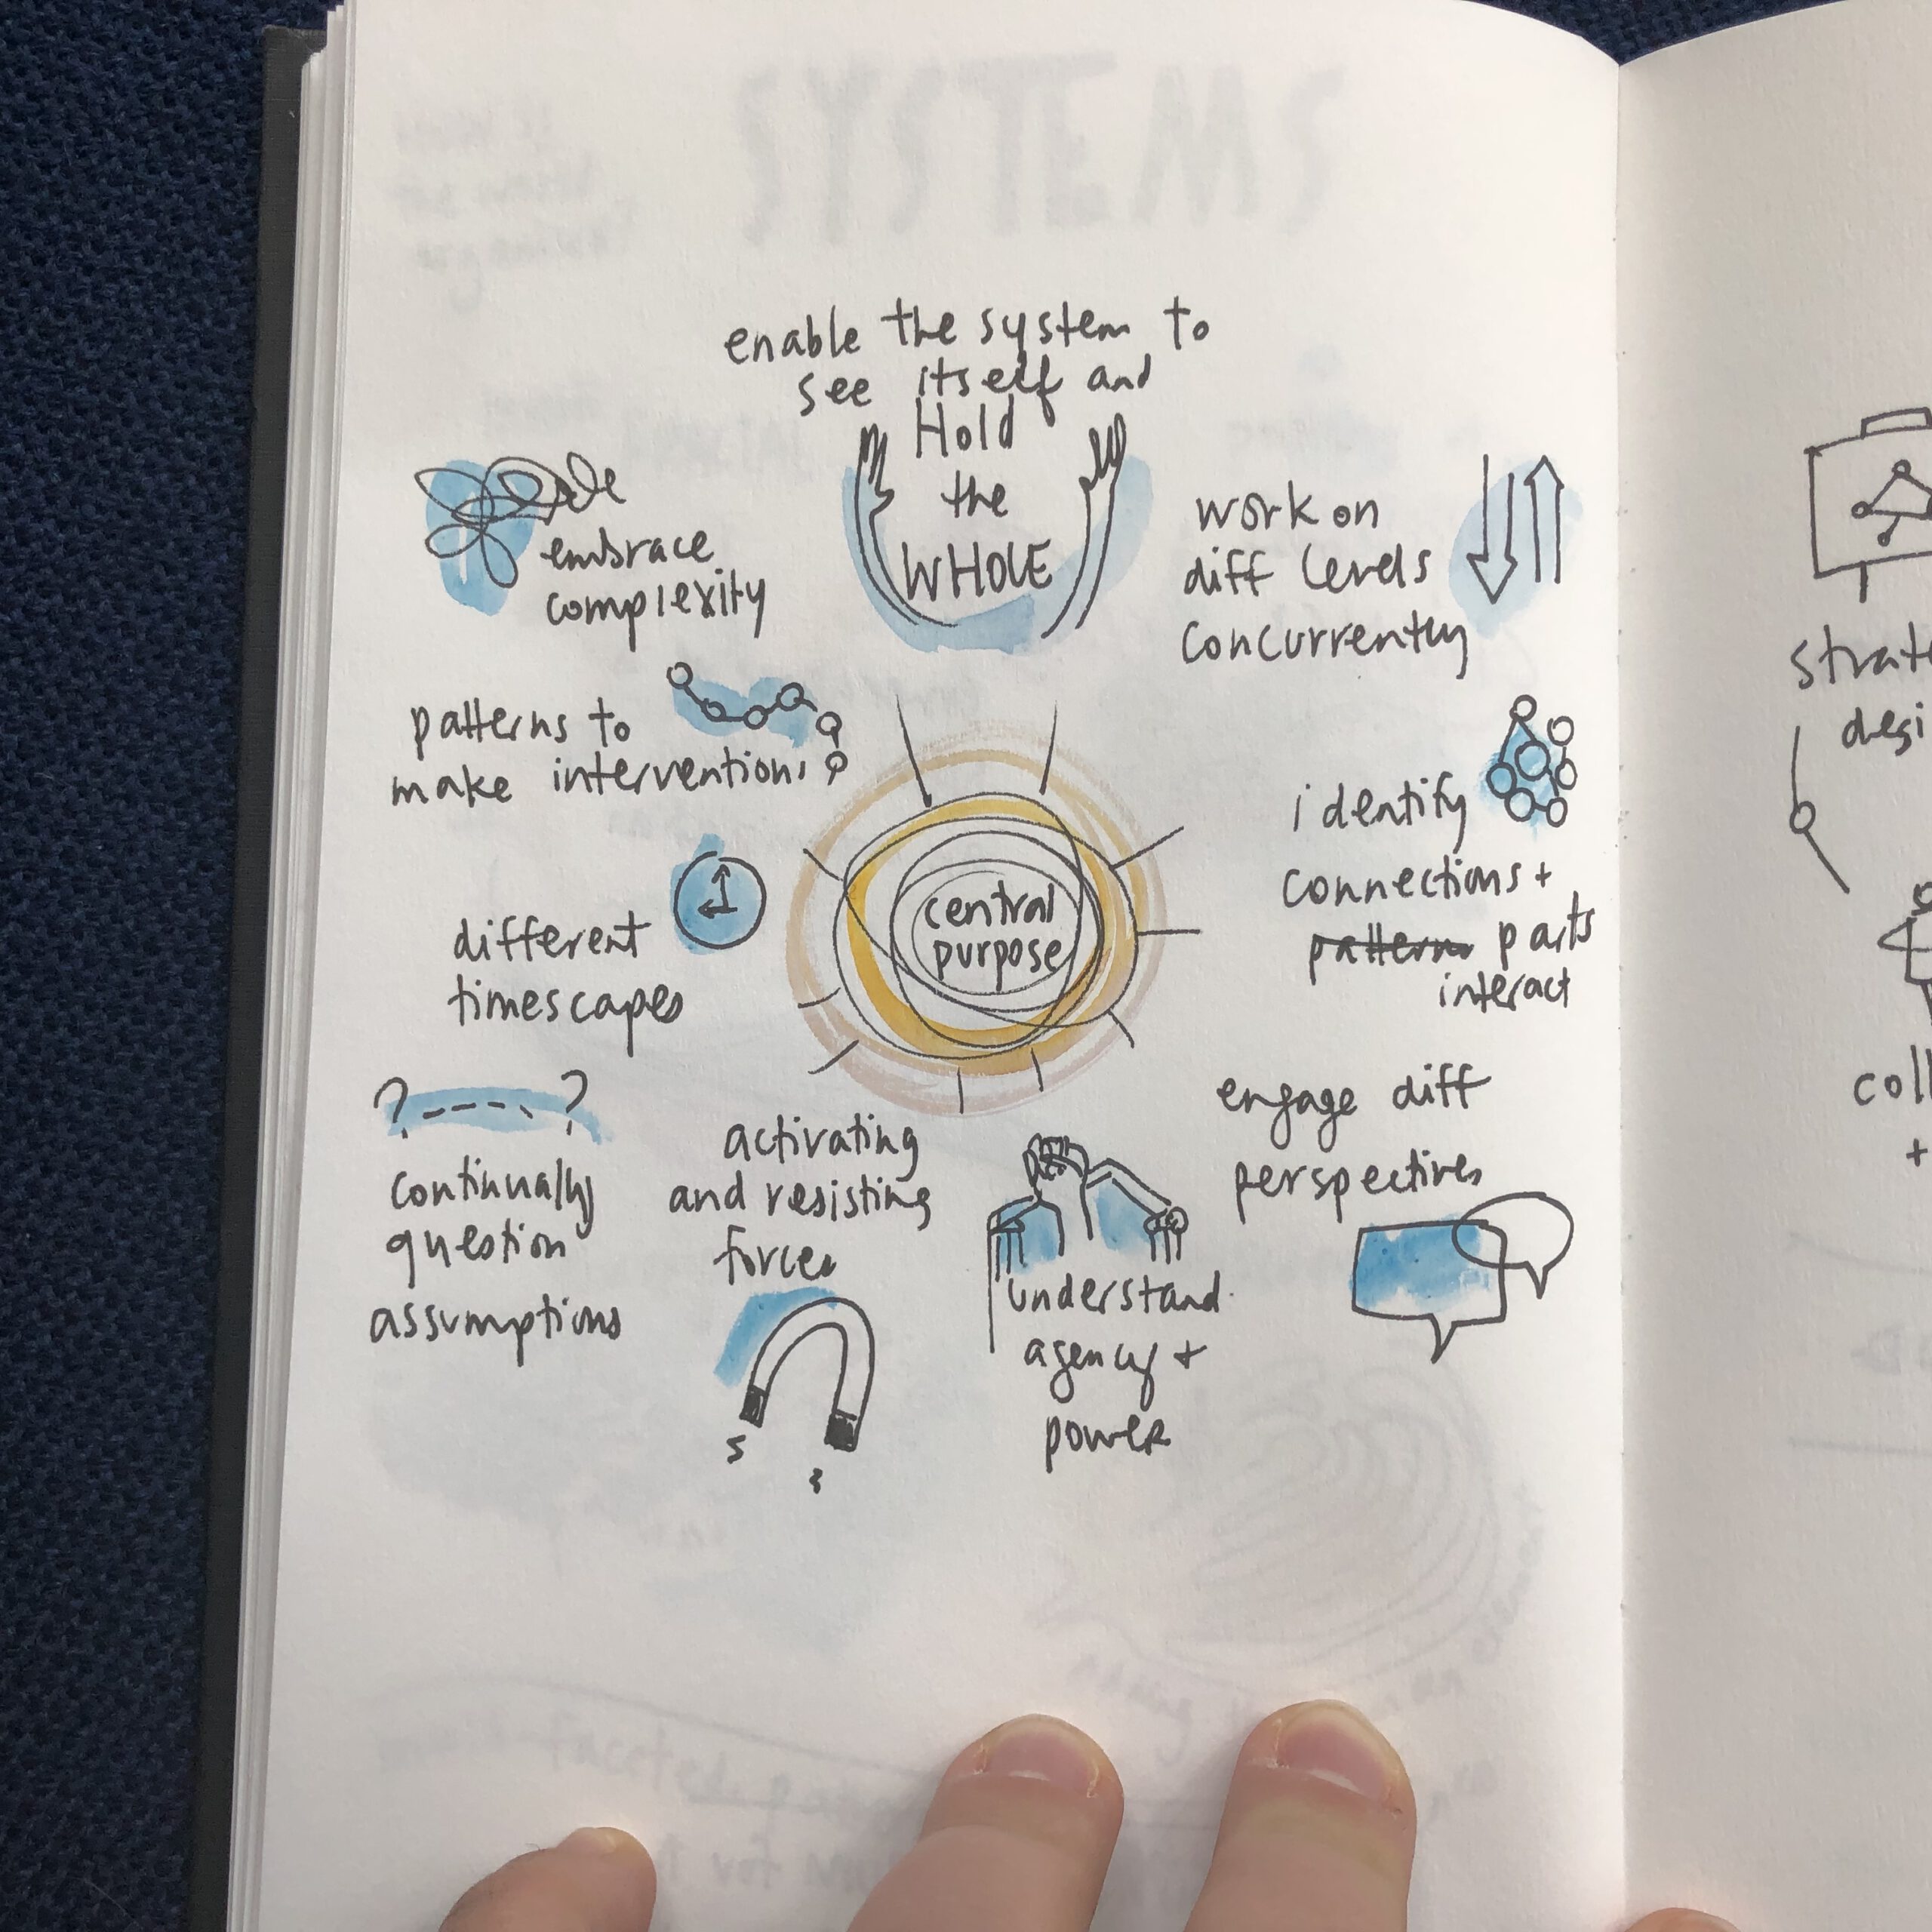 SYSTEMS
enable the system to
see itself and
Hold
the
WHOLE
embrace
complexity
work on
diff levels
concurrently
patterns to
make interventions
identify
connections +
pattern parts
interact
different
timescapes
central
purpose
? ?
continually
question
assumptions
activating
and resisting
forces
S
understand
agency +
power
engage diff
perspectives